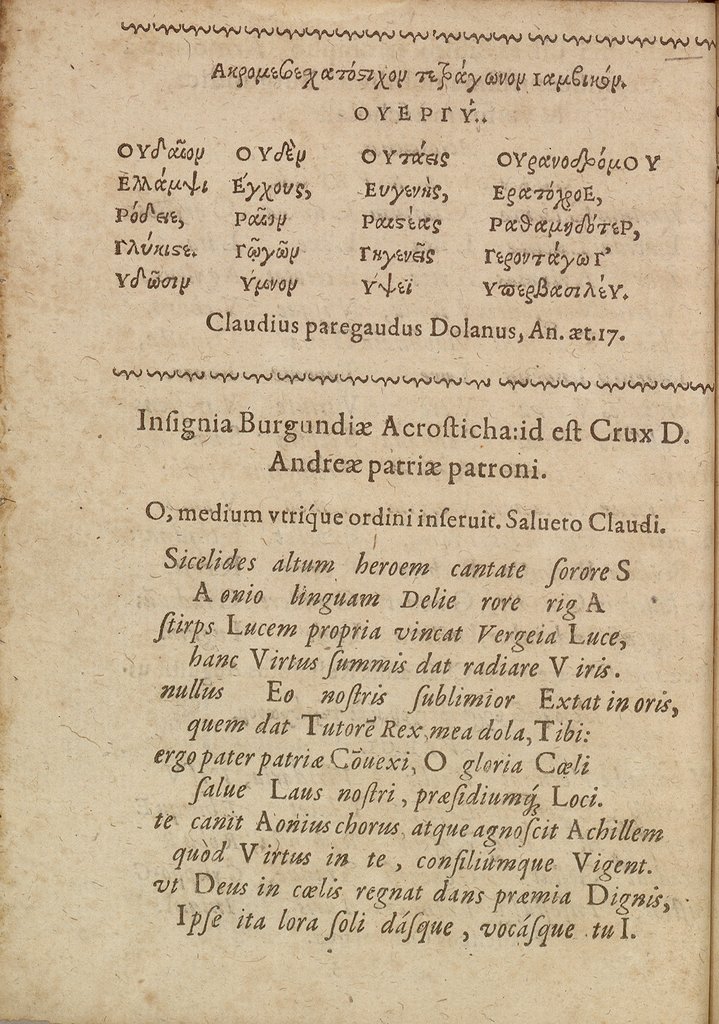 ΟΥΕΡΓΎ.
ΟΥδαῖον ΟΥδὲν ΟΥτάεις ΟΥρανοδρόμΟΥ
Ελλάμψι Ἐγχους, Ευγενὴς,
Ρόδεις, Ραῖον
Γλύκισε. Γηγενεῖς
Υδῶσιν Ύμνον Ύψεϊ ΥπερβασιλέΥ.
Claudius paregaudus Dolanus, An. æt.17.
Inſignia Burgundiæ Acroſticha:id eſt Crux D.
Andreæ patriæ patroni.
O, medium vtriq́ue ordini inſeruit. Salueto Claudi.
Sicelides altum heroem cantate ſorore S
A onio linguam Delie rore rig A
ſtirps Lucem propria vincat Vergeia Luce,
hanc Virtus ſummis dat radiare V iris.
nullus Eo noſtris ſublimior Extat in oris,
quem dat Tutorē Rex mea dola, Tibi:
ergo pater patriæ Cōuexi, O gloria Cœli
ſalue Laus noſtri, præſidiumq́; Loci.
te canit Aonius chorus atque agnoſcit Achillem
quòd Virtus in te, conſiliúmque Vigent.
vt Deus in cœlis regnat dans præmia Dignis,
Ipſe ita lora ſoli dáſque, vocáſque tu I.